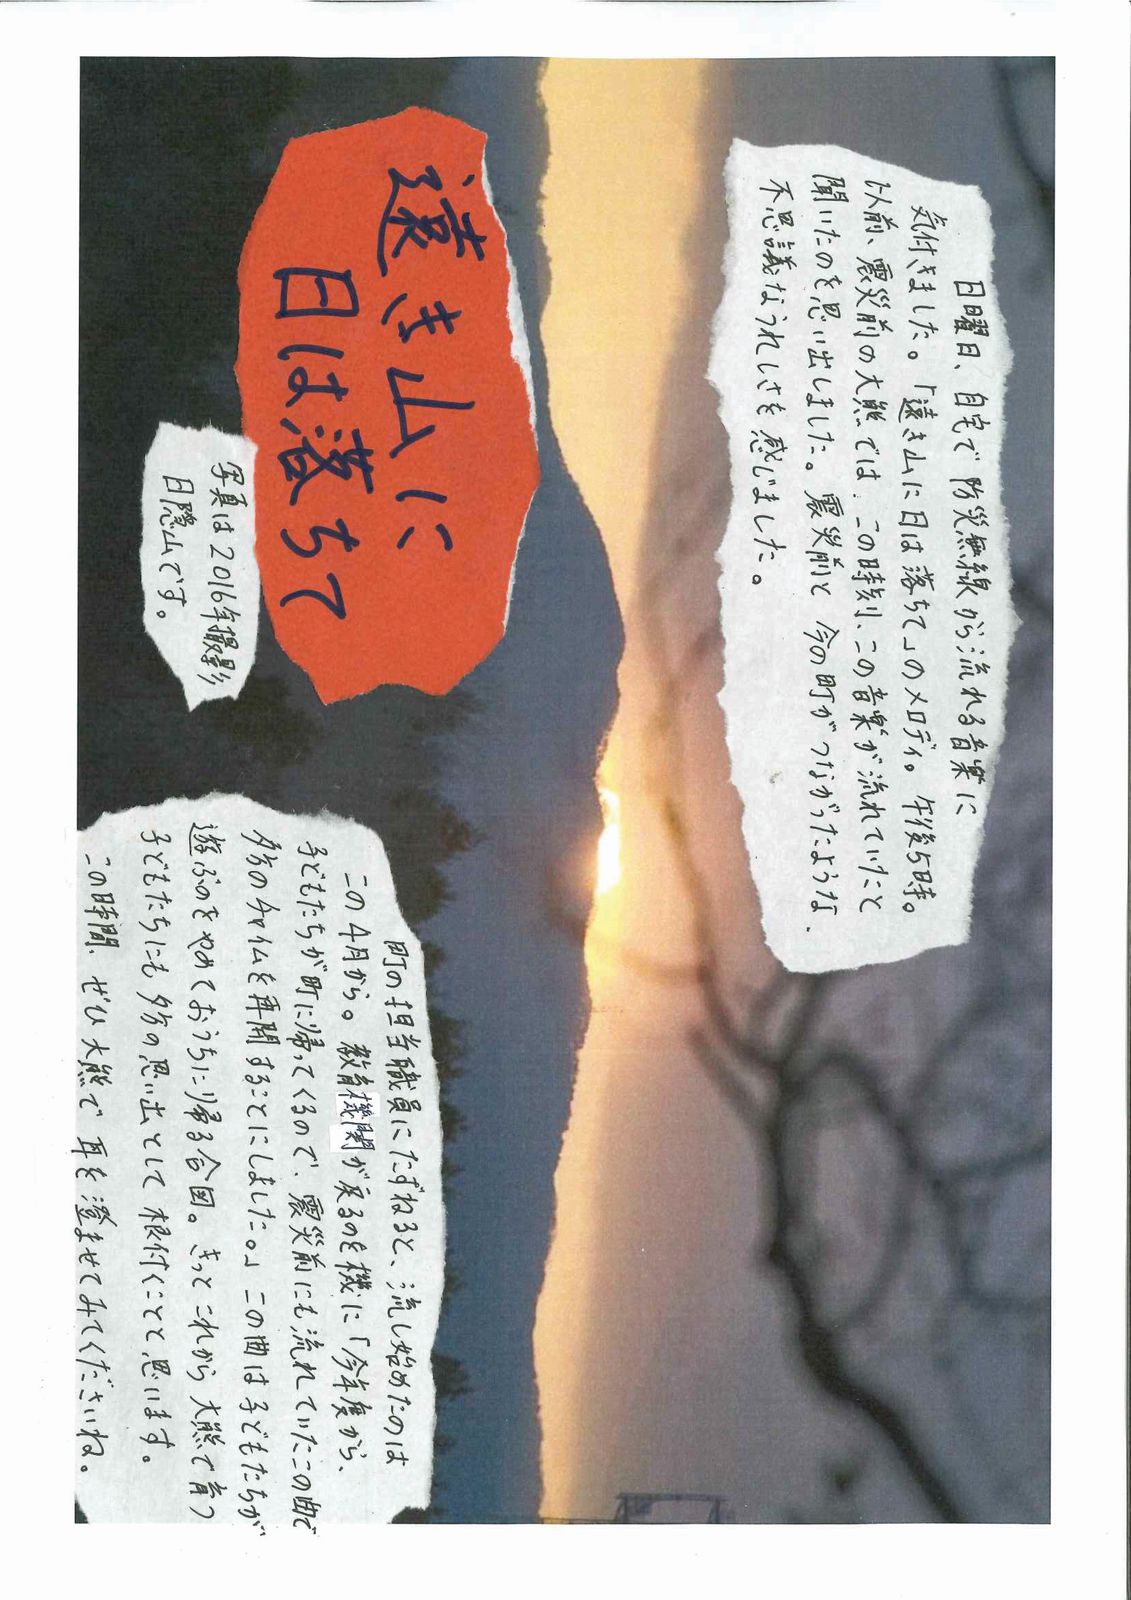 遠き山に
日は落ちて
写真は2016年撮影
日隠山です。
日曜日、自宅で防災無線から流れる音楽に
気付きました。「遠き山に日は落ちて」のメロディ。午後5時。
以前、震災前の大熊では、この時刻、この音楽が流れていたと
聞いたのを思い出しました。震災前と今の町がつながったような、
不思議なうれしさを感じました。
町の担当職員にたずねると、流し始めたのは
この4月から。教育機関が戻るのを機に「今年度から、
子どもたちが町に帰ってくるので、震災前にも流れていたこの曲で
夕方のチャイムを再開することにしました。」この曲は子どもたちが
遊ぶのをやめておうちに帰る合図。きっとこれから大熊で育つ
子どもたちにも夕方の思い出として根付くことと思います。
この時間、ぜひ大熊で耳を澄ませてみてくださいね。